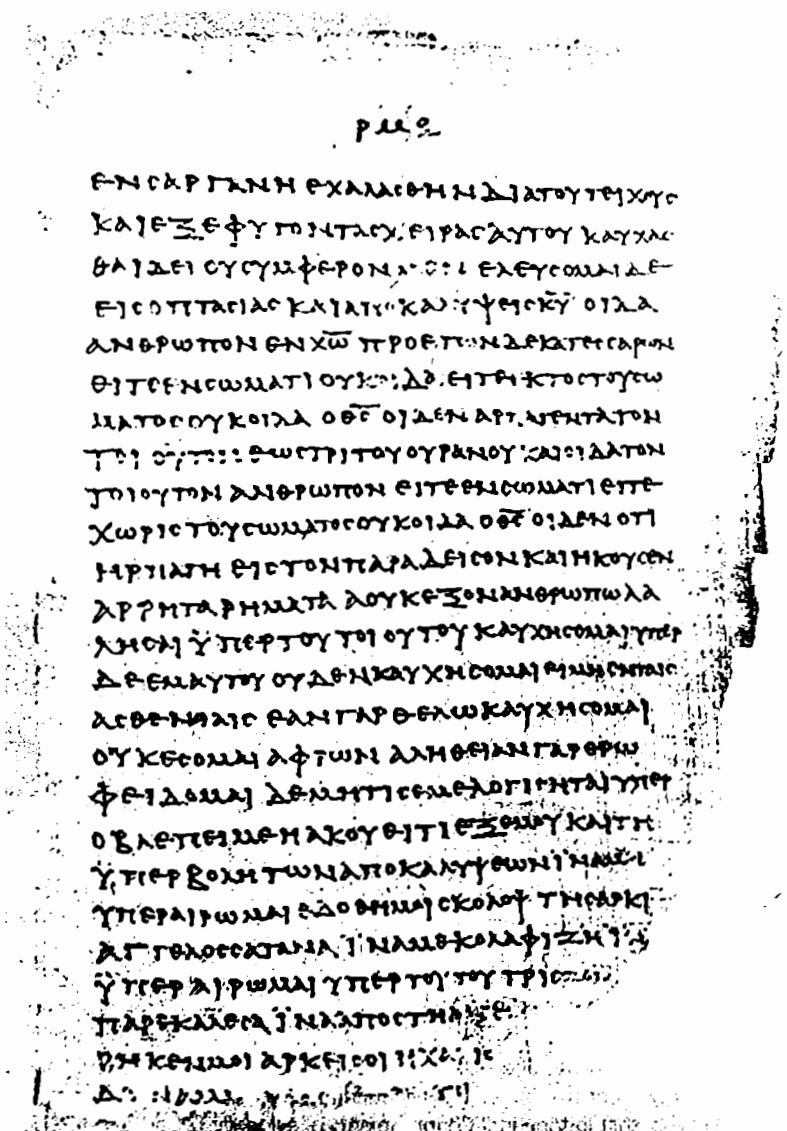 ρμθ
ενσαργανηεχαλασθηνδιατουτειχους
καιεξεφυγοντασχειρασαυτουκαυχασ
θαιδειουσυμφερον ελευσομαιδε
εισοπτασιαςκαι κ̅υ̅ οιδα
ανθρωπονενχ̅ω̅ προ δεκατεσσαρων
ειτεενσωματιουκ ειτεεκτοςτουσω
ματοςουκοιδα οθ̅ς̅ οιδεν τον
εωςτριτουουρανουκαιοιδατον
τοιουτονανθρωπονειτεενσωματιειτε
χωριςτουσωματοςουκοιδαοθ̅ς̅οιδενοτι
ηρπαγηειςτονπαραδεισονκαιηκουσεν
αρρηταρηματα αουκεξονανθρωπωλα
λησαιϋπερτουτοιουτουκαυχησομαιϋπερ
δεεμαυτουουδενκαυχησομαιειμηενταις
ασθενειαις εανγαρθελωκαυχησομαι
ουκεσομαιαφρωνοαληθειανγαρερω
φειδομαι δεμητιςεμελογισηταιϋπερ
οβλεπειμεηακουειτιεξεμουκαιτη
ϋπερβοληωναποκαλυψεωνϊναμη
υπεραιρωμαιεδοθημοισκολοψ τησαρκι
αγγελοςσατανα ϊναμεκολαφιζηϊ
ϋπεραιρωμαιυπερτουτουτρις
παρεκαλεσαϊνααποστη
ρηκενμοιαρκεισοιηχα